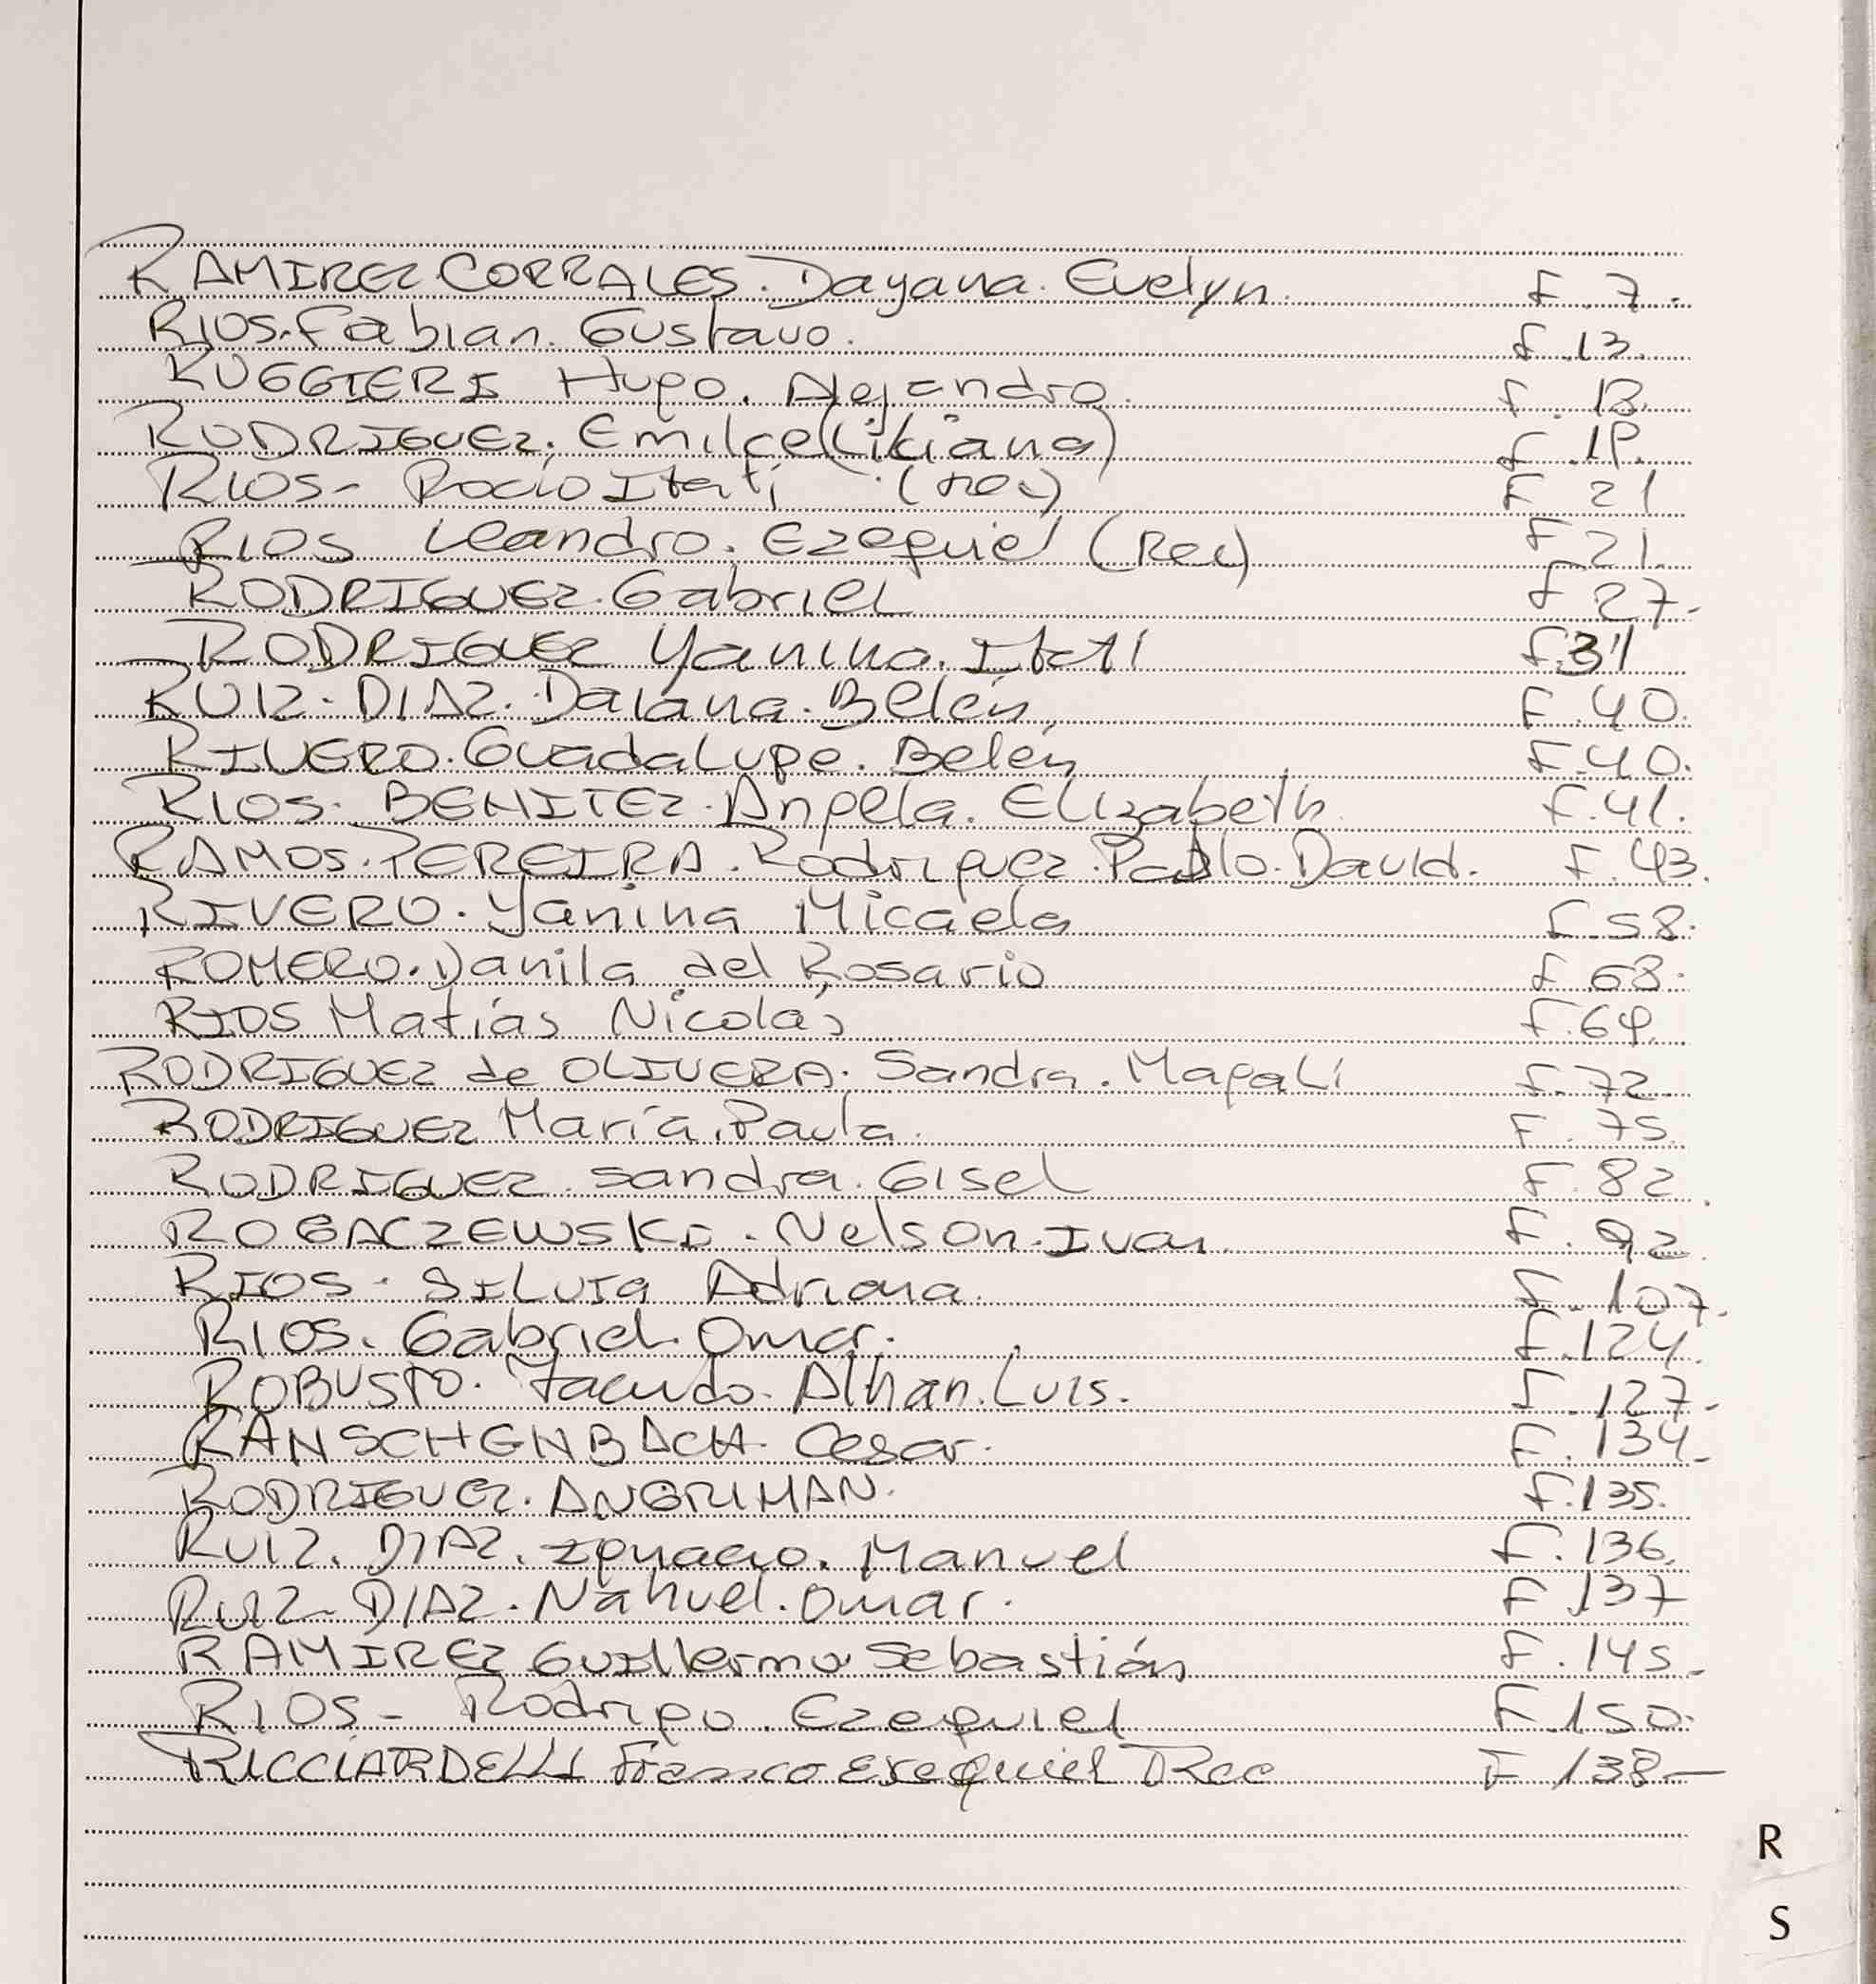 RAMIREZ CORRALES. Dayana. Evelyn. F. 7.
RIOS. Fabian. Gustavo. F. 13.
RUGGIERI Hugo. Alejandro. F. 13.
RODRIGUEZ. Emilce (Liliana) F. 19.
RIOS - Rocio Itati (Rec) F. 21
RIOS Leandro. Ezequiel (Rec) F 21.
RODRIGUEZ. Gabriel F 27.
RODRIGUEZ Yanina. Itatí F. 31
RUIZ. DIAZ. Daiana. Belén. F. 40.
RIVERO. Guadalupe. Belén F. 40.
RIOS. BENITEZ. Angela. Elizabeth F. 41.
RAMOS. PEREIRA. Rodriguez. Pablo. David. F. 43.
RIVERO. Yanina Micaela F. 58.
ROMERO. Danila del Rosario F 68.
RIOS Matías Nicolás F. 69.
RODRIGUEZ de OLIVERA. Sandra. Magalí F. 72.
RODRIGUEZ María. Paula. F. 75.
RODRIGUEZ Sandra. Gisel F. 82.
ROGACZEWSKI. Nelson. Ivan F. 92.
RIOS. Silvia Adriana. F. 107.
RIOS. Gabriel. Omar. F. 124.
ROBUSTO. Facundo. Alhan. Luis. F. 127.
RANSCHENBACH. Cesar. F. 134.
RODRIGUEZ. ANGRIMAN. F. 135.
RUIZ. DIAZ. Ignacio. Manuel F. 136.
RUIZ - DIAZ. Nahuel. Omar. F 137
RAMIREZ Guillermo Sebastián F. 145.
RIOS - Rodrigo. Ezequiel F. 150.
RICCIARDELLI Franco Exequiel Rec F 138-
R
S